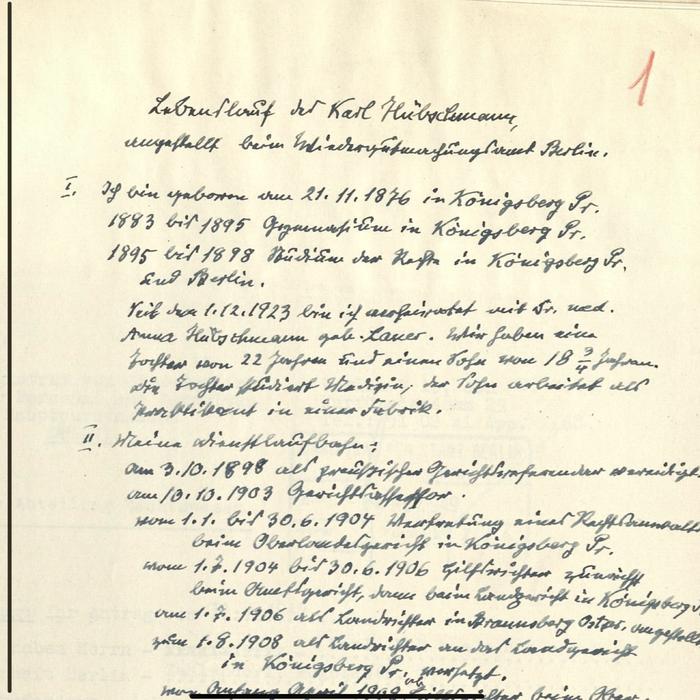 1
Lebenslauf des Karl Hübschmann,
angestellt beim Wiedergutmachungsamt Berlin.
I. Ich bin geboren am 21.11.1876 in Königsberg Pr.
1883 bis 1895 Gymnasium in Königsberg Pr.
1895 bis 1898 Studium der Rechte in Königsberg Pr.
und Berlin.
Seit dem 1.12.1923 bin ich verheiratet mit Dr. med.
Anna Hübschmann geb. Laner. Wir haben eine
Tochter von 22 Jahren und einen Sohn von 18 3/4 Jahren.
Die Tochter studiert Medizin, der Sohn arbeitet als
Praktikant in einer Fabrik.
II. Meine Dienstlaufbahn:
am 3.10.1898 als preußischer Gerichtsreferendar vereidigt.
am 10.10.1903 Gerichtsassessor.
vom 1.1. bis 30.6.1904 Vertretung eines Rechtsanwalts
beim Oberlandesgericht in Königsberg Pr.
vom 1.7.1904 bis 30.6.1906 Hilfsrichter zunächst
beim Amtsgericht, dann beim Landgericht in Königsberg
am 1.7.1906 als Landrichter in Braunsberg Ostpr. angestellt
zum 1.8.1908 als Landrichter an das Landgericht
in Königsberg Pr. versetzt.
von Anfang April 1909 ab beim Ober